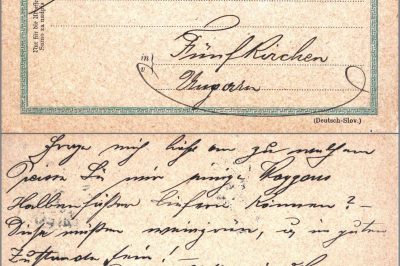 Nur für die Adresse
in
v
Fünfkirchen
Ungarn
(Deutsch-Slov.)
frage mich höfl. an zu welchem
Preise Sie mir einige Waggons
Halbenfüßer liefern können? –
Diese müßen weingrün, u. in guten
Zustande sein! –